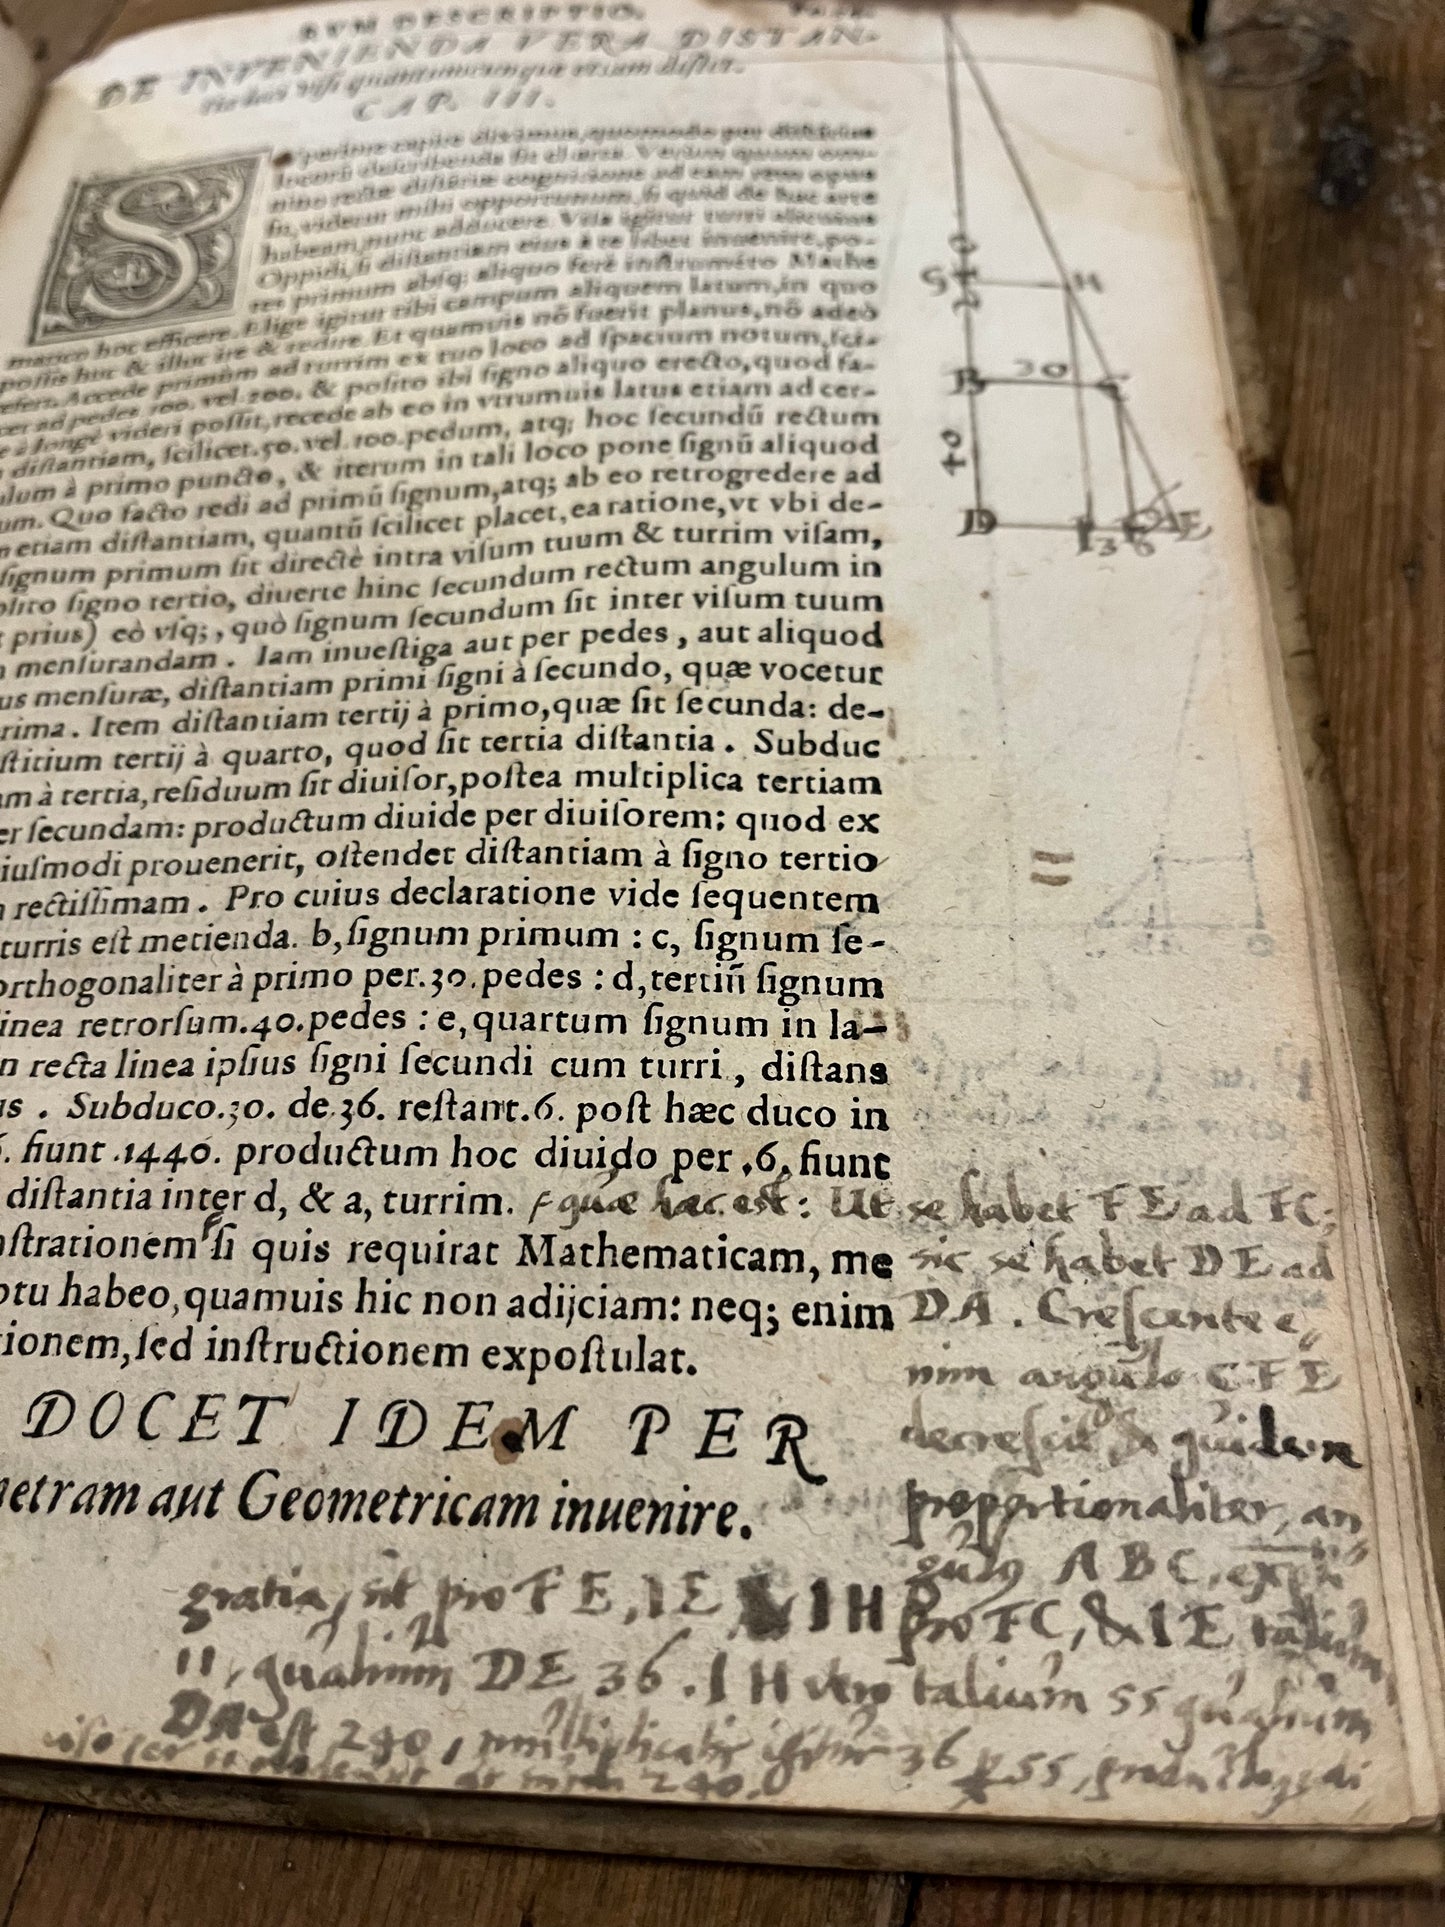 RVM DESCRIPTIO.
DE INVENIENDA VERA DISTAN-
tia loci visi quantumcunque etiam distet.
CAP. III.
S
Vperiore capite diximus, quomodo per
locorū describenda sit
nino rectæ distātiæ cognitione ad eam rem opus
sit, videtur mihi opportunum, si quid de hac arte
habeam, nunc adducere. Visa igitur turri alicuius
Oppidi, si distantiam eius à te libet inuenire, po-
tes primum absq; aliquo ferè instrumēto Mathe
matico hoc efficere. Elige igitur tibi campum aliquem latum, in quo
possis huc & illuc ire & redire. Et quamuis nō fuerit planus, nō adeò
refert. Accede primùm ad turrim ex tuo loco ad spacium notum, sci-
cet ad pedes 100. vel. 200. & posito ibi signo aliquo erecto, quod fa-
e à longè videri possit, recede ab eo in vtrumuis latus etiam ad cer-
distantiam, scilicet. 50. vel. 100. pedum, atq; hoc secundū rectum
ulum à primo puncto, & iterum in tali loco pone signū aliquod
um. Quo facto redi ad primū signum, atq; ab eo retrogredere ad
etiam distantiam, quantū scilicet placet, ea ratione, vt vbi de-
signum primum sit directè intra visum tuum & turrim visam,
sito signo tertio, diuerte hinc secundum rectum angulum in
prius) eò vsq;, quò signum secundum sit inter visum tuum
mensurandam. Iam inuestiga aut per pedes, aut aliquod
us mensuræ, distantiam primi signi à secundo, quæ vocetur
rima. Item distantiam tertij à primo, quæ sit secunda: de-
stitium tertij à quarto, quod sit tertia distantia. Subduc
am à tertia, residuum sit diuisor, postea multiplica tertiam
er secundam: productum diuide per diuisorem; quod ex
iusmodi prouenerit, ostendet distantiam à signo tertio
rectissimam. Pro cuius declaratione vide sequentem
turris est metienda. b, signum primum: c, signum se-
orthogonaliter à primo per. 30. pedes: d, tertiū signum
inea retrorsum. 40. pedes: e, quartum signum in la-
n recta linea ipsius signi secundi cum turri, distans
us. Subduco. 30. de. 36. restant. 6. post hæc duco in
6. fiunt. 1440. productum hoc diuido per. 6. fiunt
distantia inter d, & a, turrim.
nstrationem si quis requirat Mathematicam, me
ptu habeo, quamuis hic non adijciam: neq; enim
tionem, sed instructionem expostulat.
DOCET IDEM PER
metram aut Geometricam inuenire.
G H
B 30 C
40
D F 36 E
quæ hæc est: Ut se habet FE ad FC;
sic se habet DE ad
DA. Crescente e,,
nim angulo CFE
decrescit & quidem
proportionaliter, an
gulus ABC, ex
gratia, sit pro FE, IE & IH pro FC, & IE talium
11, qualium DE 36. IH vero talium 55 qualium
DA est 240, multiplicatis igitur 36 55,
240.